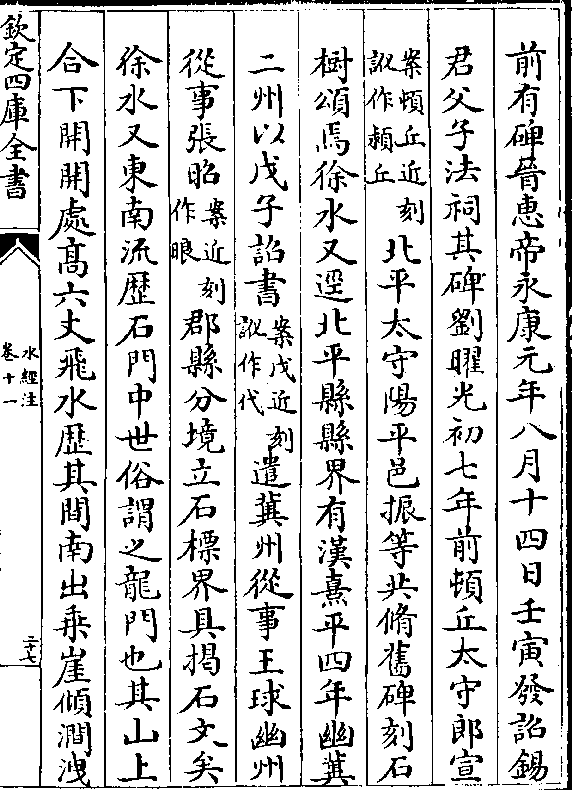 前有碑晉惠帝永康元年八月十四日壬寅發詔錫
君父子法祠其碑劉曜光初七年前頓丘太守郎宣
案頓丘近刻
訛作潁丘
北平太守陽平邑振等共脩舊碑刻石
樹頌焉徐水又逕北平縣縣界有漢熹平四年幽冀
二州以戊子詔書
案戊近刻
訛作代
遣冀州從事王球幽州
從事張昭
案近刻
作眼
郡縣分境立石標界具揭石文矣
徐水又東南流歷石門中世俗謂之龍門也其山上
合下開開處高六丈飛水歷其間南出乗崖傾澗洩
欽定四庫全書
水經注
卷十一
二十七